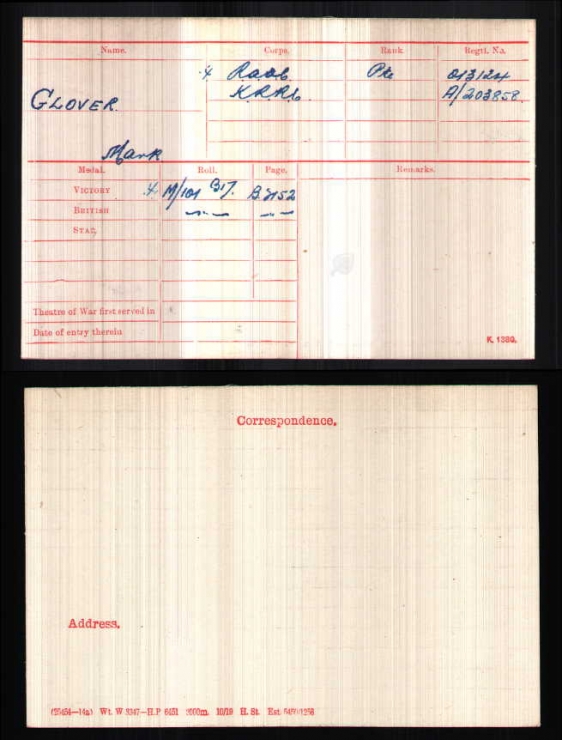 Name. Corps. Rank Regtl. No.
RAOC Pte 013124
GLOVER K.R.R.C. A/203858.
Mark
Medal. Roll. Page. Remarks.
VICTORY M/101 B17. B2152
BRITISH —〃— —〃—
STAR
Theatre of War first served in
Date of entry therein
K. 1380.
Correspondence.
Address.
Wt. W 3347—H.P 6451 2000m. 10/19 H. St.